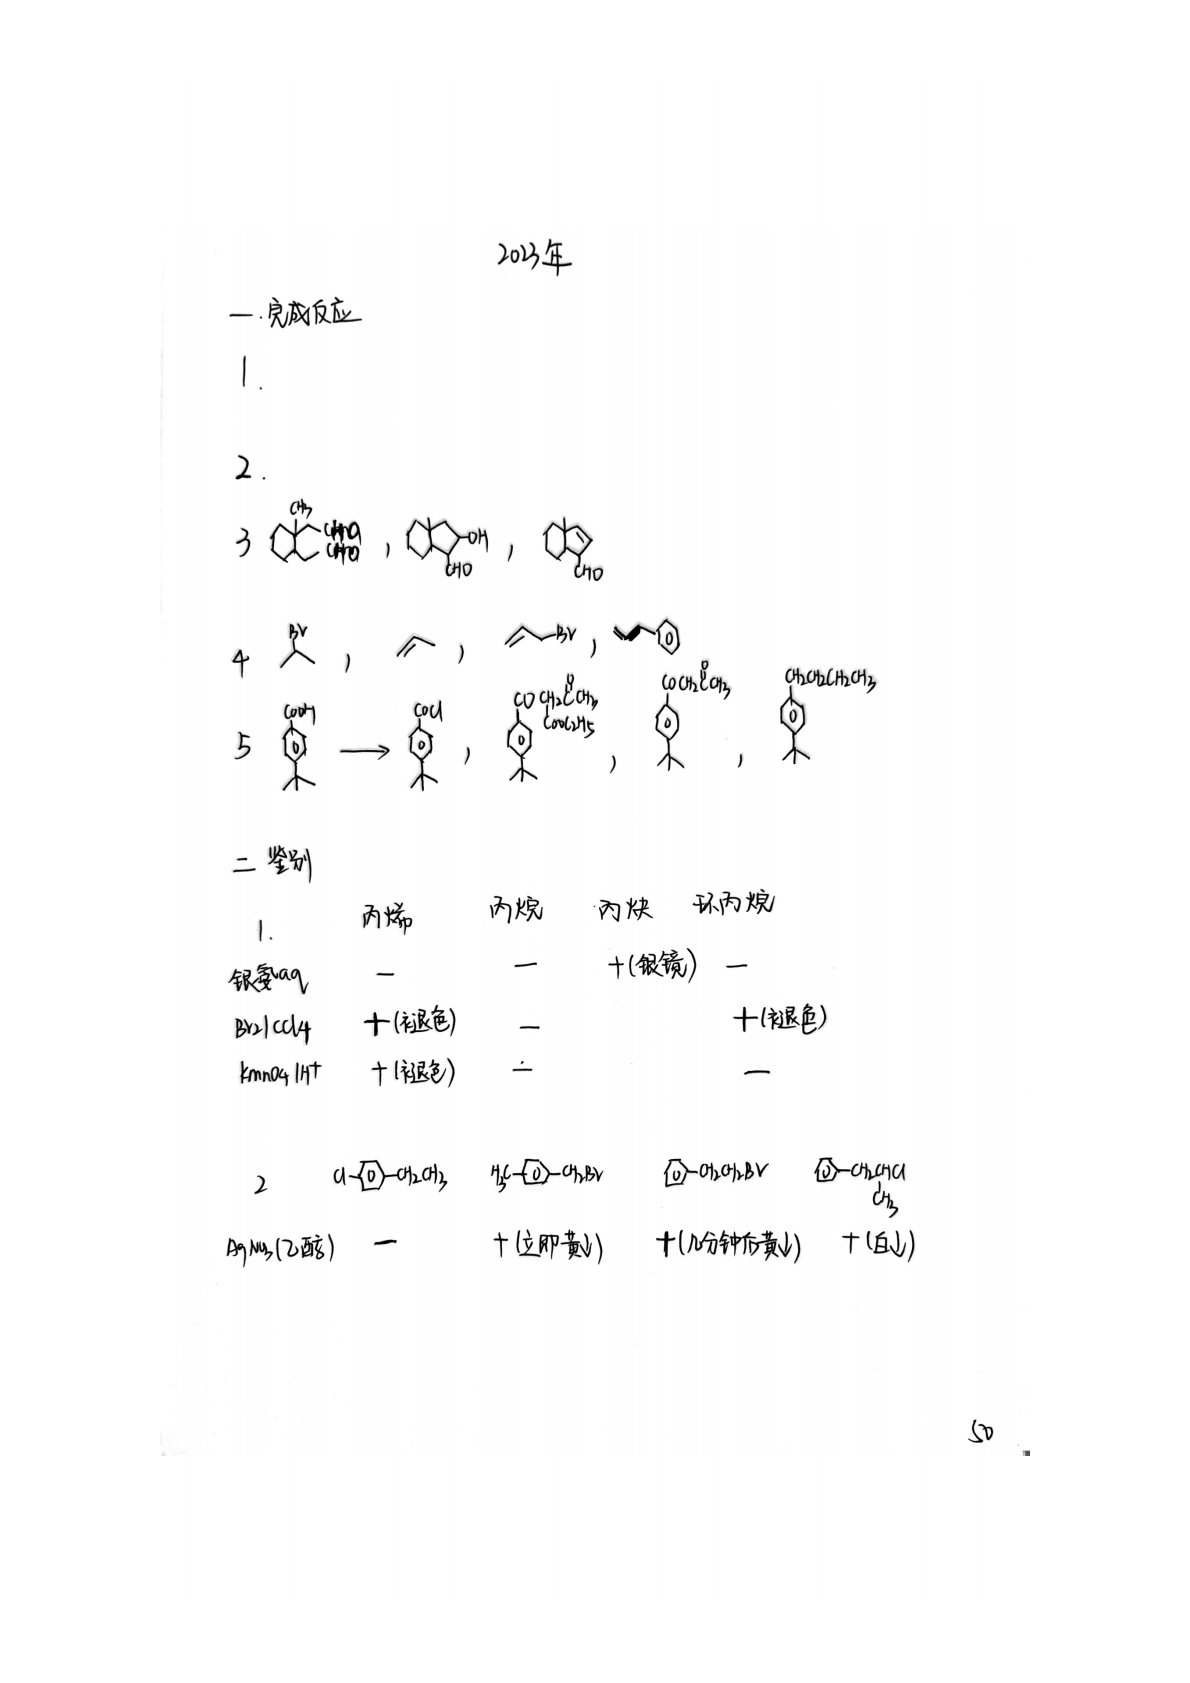 2023年
一.完成反应
1.
2.
3 CH3 CHO CHO , OH CHO , CHO
4 Br , , Br ,
5 COOH COCl , CO CH2 C CH3 O COOC2H5 , CO CH2 C CH3 O , CH2CH2CH2CH3
二 鉴别
1. 丙烯 丙烷 丙炔 环丙烷
银氨aq — — +(银镜) —
Br2/CCl4 +(褪色) — +(褪色)
KmnO4/H+ +(褪色) — —
2 Cl CH2CH3 H3C CH2Br CH2CH2Br CH2CHCl CH3
AgNO3(乙醇) — +(立即黄↓) +(几分钟后黄↓) +(白↓)
50